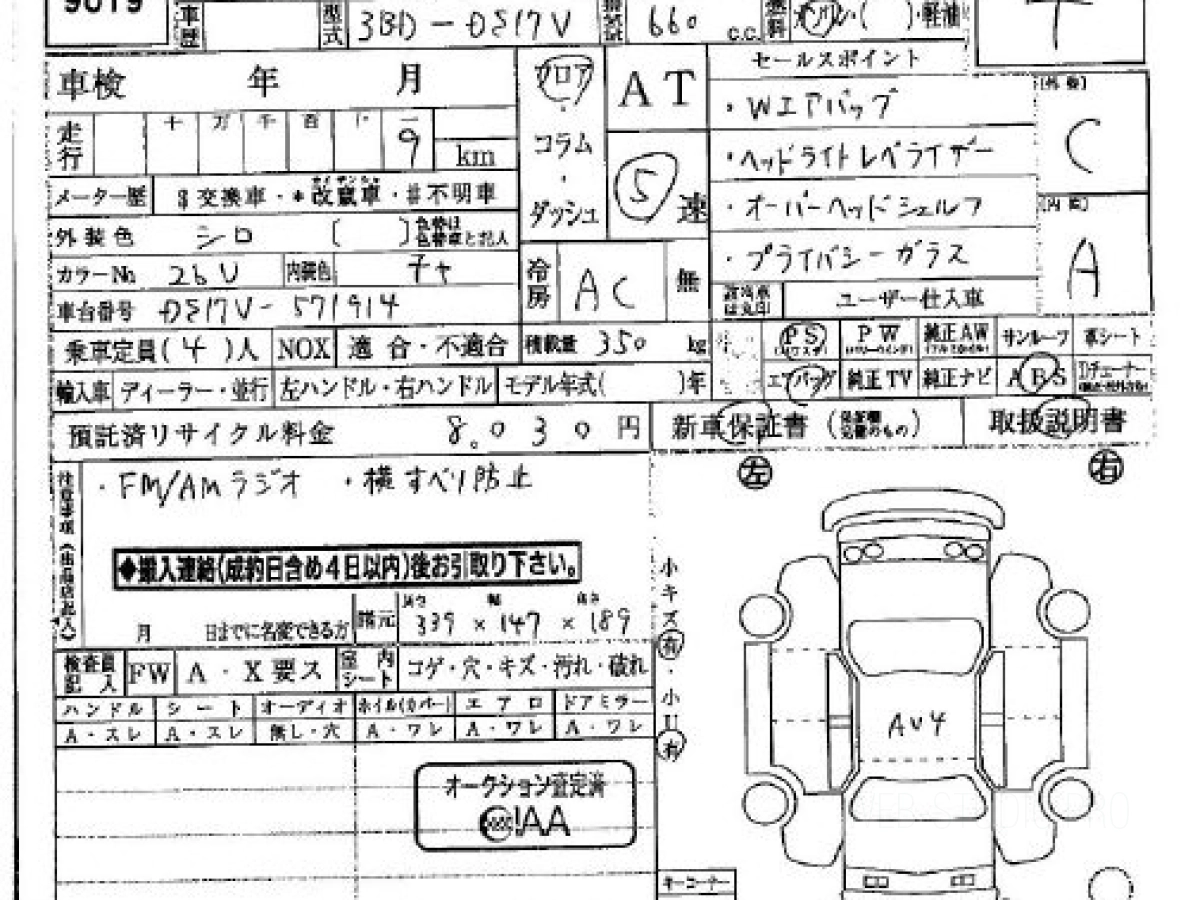 9019
車歴
型式 3BD-DS17V
660 c.c.
燃料 ガソリン・( )・軽油
車検 年 月
走行 十 万 千 百 十 一
9 km
メーター歴 $交換車・*改竄車・#不明車
外装色 シロ ( ) 色替は色替車と記入
カラーNo 26U 内装色 チャ
車台番号 DS17V-571914
乗車定員(4)人 NOX 適合・不適合 積載量 350 kg
輸入車 ディーラー・並行 左ハンドル・右ハンドル モデル年式( )年
預託済リサイクル料金 8,030円
フロア
・
コラム
・
ダッシュ
AT
5 速
冷房 AC 無
セールスポイント
・Wエアバッグ
・ヘッドライトレベライザー
・オーバーヘッドシェルフ
・プライバシーガラス
ユーザー仕入車
[外装]
C
[内装]
A
PS PW 純正AW サンルーフ 革シート
エアバッグ 純正TV 純正ナビ ABS
新車保証書
取扱説明書
注意事項(出品店記入)
・FM/AMラジオ ・横すべり防止
◆搬入連絡(成約日含め4日以内)後お引取り下さい。
月 日までに名変できる方
諸元 長さ 幅 高さ
339 × 147 × 189
検査員記入 FW A・X要ス 室内シート コゲ・穴・キズ・汚れ・破れ
ハンドル シート オーディオ ホイル(カバー) エアロ ドアミラー
A・スレ A・スレ 無し・穴 A・ワレ A・ワレ A・ワレ
オークション査定済
JAA
左
右
小キズ有・小U有
AU4
キーコーナー